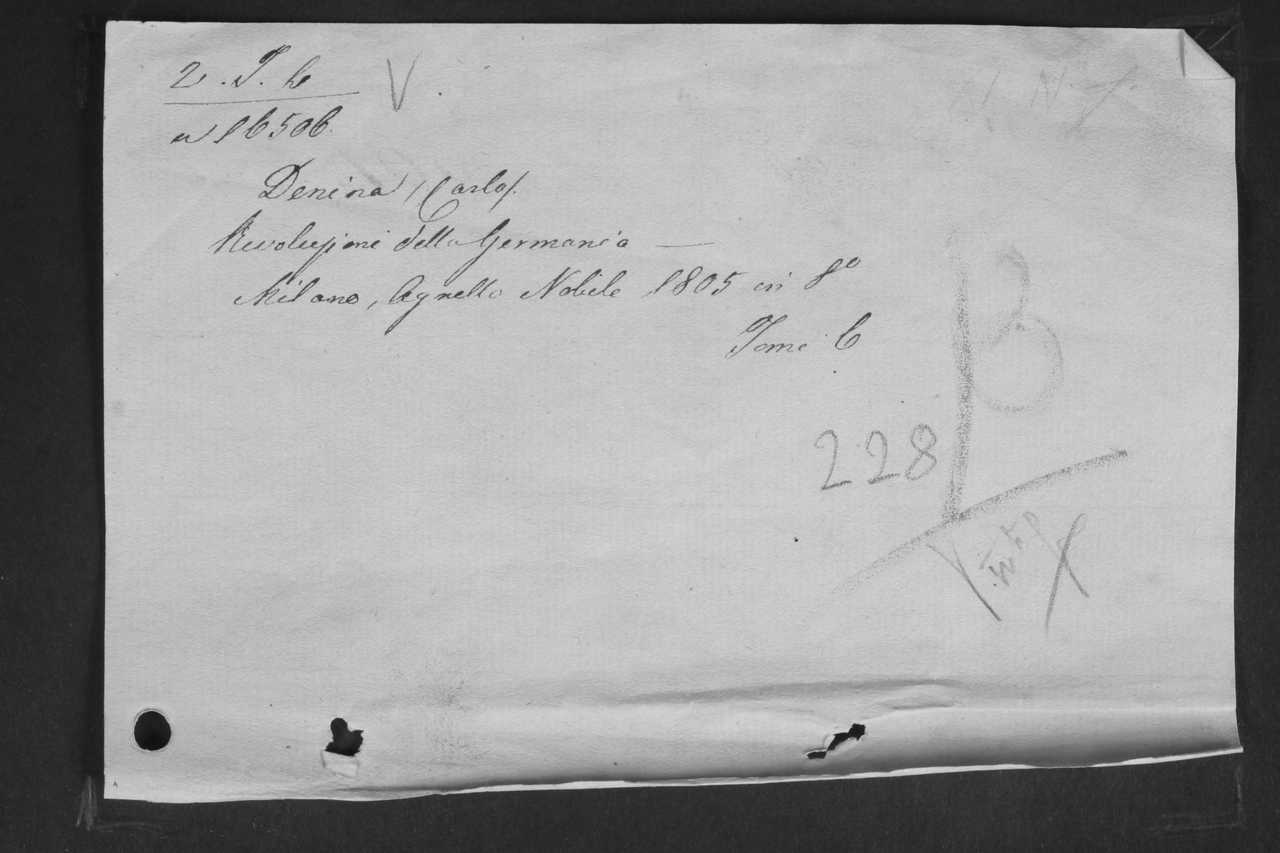 2. T. 6
a 16506.
Denina (Carlo).
Rivoluzioni della Germania —
Milano, Agnello Nobile 1805 in 8º
Tomi 6
228